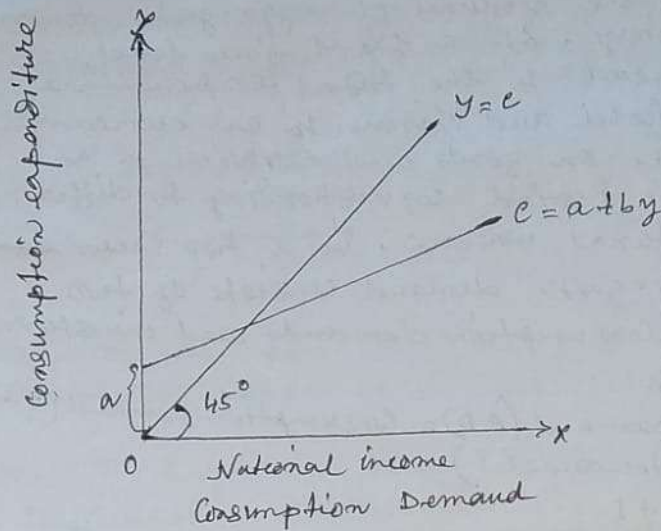 Y
Consumption expenditure
y = c
c = a + by
a
45°
0
X
National income
Consumption Demand